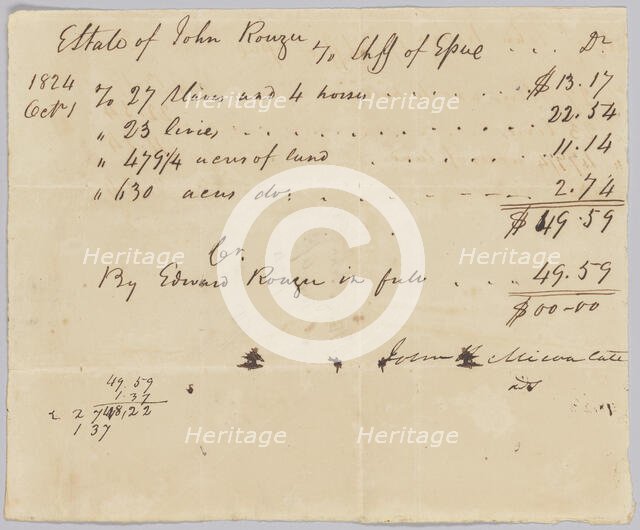 Estate of John Rouzee To Shff of Essex . . . Dr
1824
Octr 1
To 27 slaves and 4 horses . . . . . . . $13.17
" 23 livies . . . . . . . . . . . 22.54
" 479 1/4 acres of land . . . . . . 11.14
" 630 acres do. . . . . 2.74
$49.59
Cr.
By Edward Rouzee in full . . . 49.59
$00-00
John late
49.59
1.37
48,22
2 74
1 37
Heritage
Heritage
Heritage
Heritage
Heritage
Heritage
Heritage
Heritage
Heritage
©